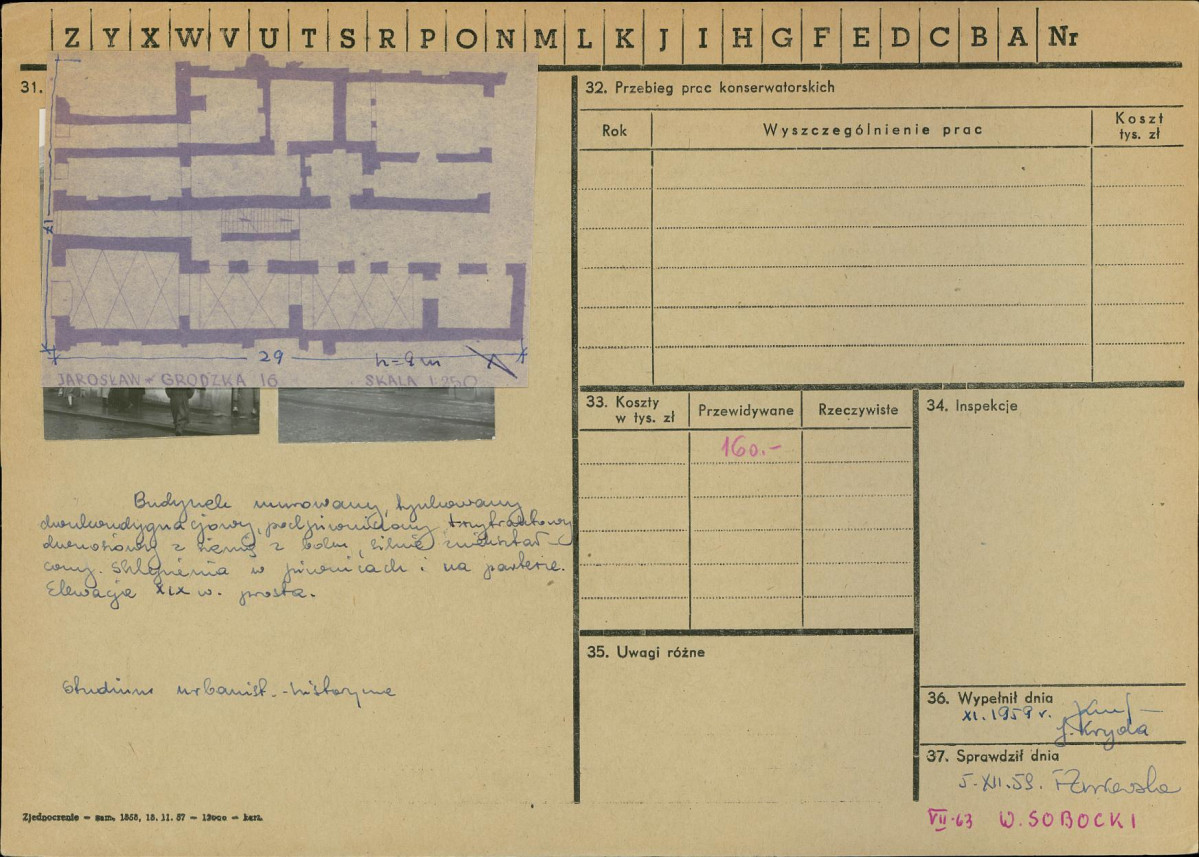 Z Y X W V U T S R P O N M L K J I H G F E D C B A Nr
31.
29
h=9m
JAROSŁAW - GRODZKA 16
SKALA 1:250
Budynek murowany, tynkowany
dwukondygnacjowy, podpiwniczony trzytraktowy
dwuosiowy z sienią z boku, silnie zniekształ-
cony. Sklepienia w piwnicach i na parterze.
Elewacja XIX w. prosta.
Studium urbanist.-historyczne
Zjednoczenie — zam. 1353, 15. 11. 57 — 12000 — kart.
32. Przebieg prac konserwatorskich
Rok
Wyszczególnienie prac
Koszt
tys. zł
33. Koszty
w tys. zł
Przewidywane
Rzeczywiste
160.-
34. Inspekcje
35. Uwagi różne
36. Wypełnił dnia
XI. 1959 r.
J. Kryda
37. Sprawdził dnia
5.XII.59.
VII.63 W. SOBOCKI